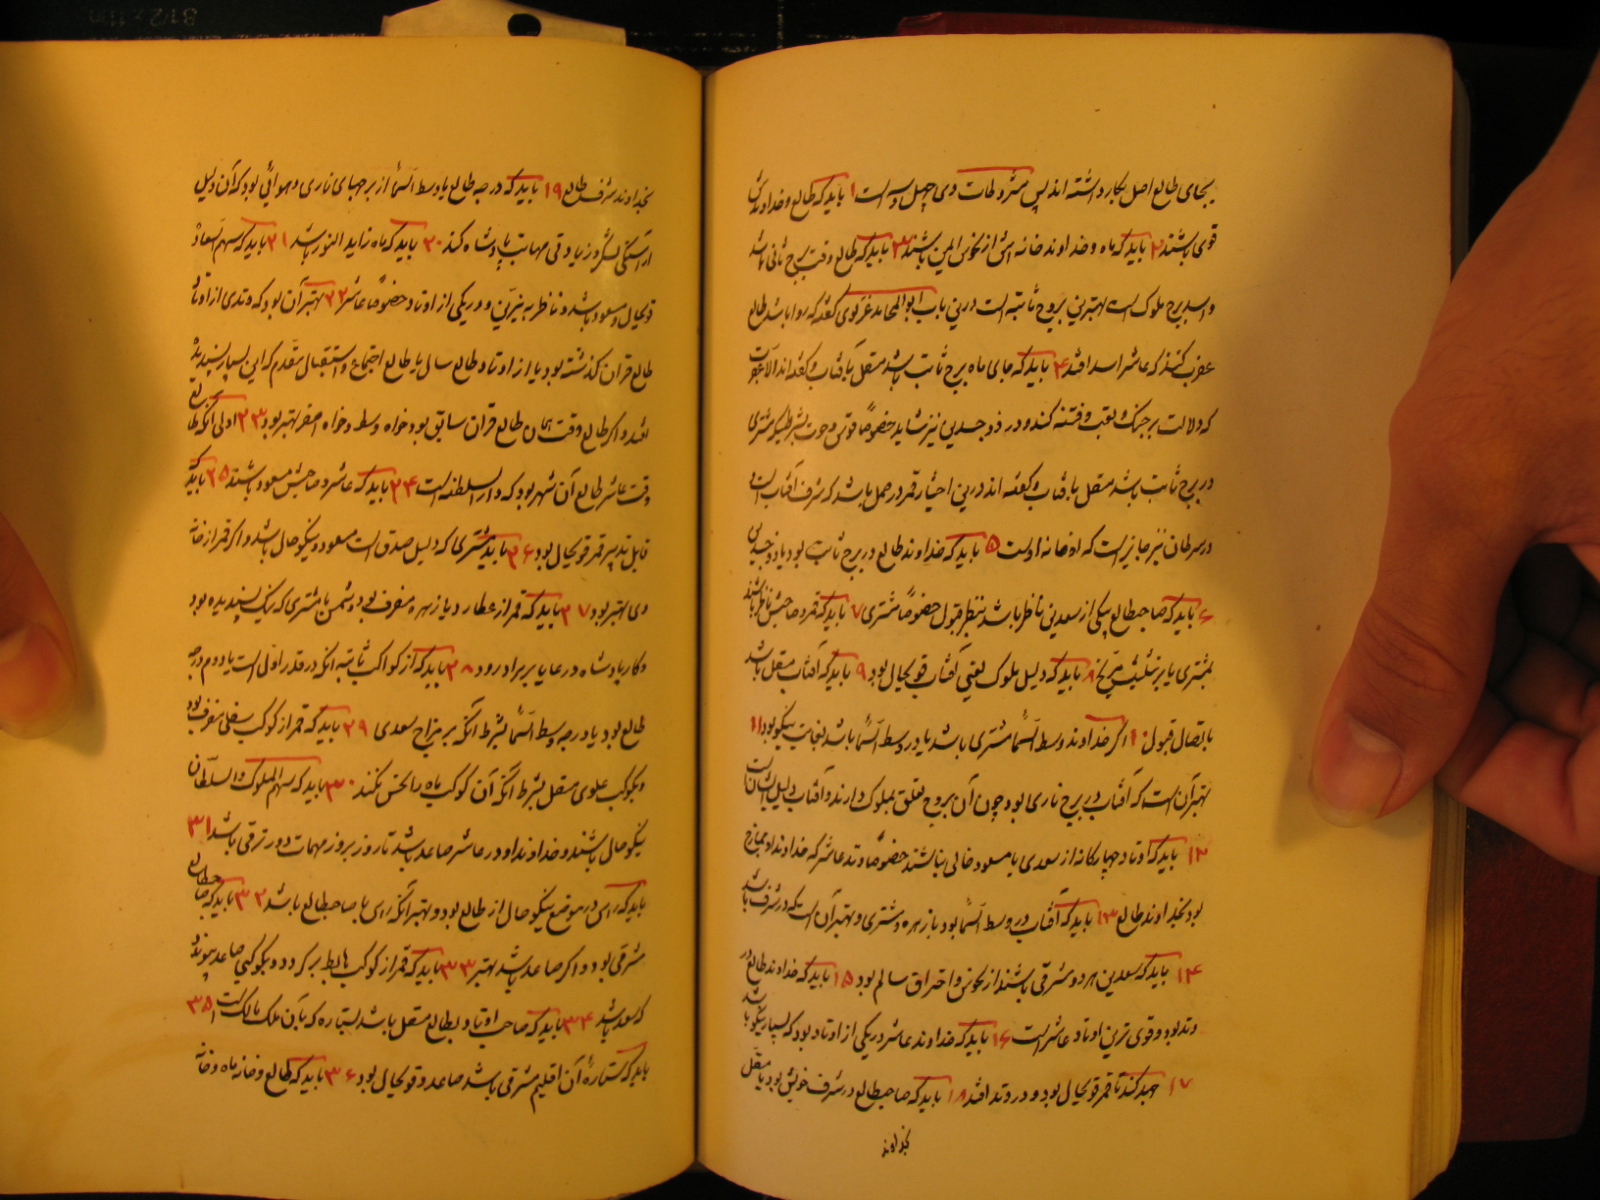 بجای طالع اصل بکار داشته اند پس مشروطات وی چهل و سه است ۱ باید که طالع و خداوندش
قوی باشند ۲ باید که ماه و خداوند خانه اش از نحوس ایمن باشند ۳ باید که طالع وقت برج ثابتی باشد
و اسد برج ملوک است بهترین بروج ثابته است درین باب ابوالمحامد غزنوی گفته که روا باشد طالع
عقرب کنند که عاشر اسد افتد ۴ باید که جای ماه برج ثابت باشد متصل بآفتاب و گفته اند الا عقرب
که دلالت بر جنگ و تعب و فتنه کند و در ذوجسدین نیز شاید خصوصاً قوس و حوت بشرطیکه مشتری
در برج ثابت باشد متصل بآفتاب و گفته اند درین اختیار قمر در حمل باشد که شرف آفتاب است و
در سرطان نیز جایز است که او خانه اوست ۵ باید که خداوند طالع در برج ثابت بود یا ذوجسدین
۶ باید که صاحب طالع بیکی از سعدین ناظر باشد بنظر قبول خصوصاً مشتری ۷ باید که قمر و صاحبش ناظر باشند
بمشتری یا بر تثلیث مریخ ۸ باید که دلیل ملوک یعنی آفتاب قویحال بود ۹ باید که آفتاب متصل باشد
باتصال قبول ۱۰ اگر خداوند وسط السما مشتری باشد یا در وسط السما باشد بغایت نیکو بود ۱۱
بهتر آن است که آفتاب در برج ناری بود چون آن بروج تعلق بملوک دارند و آفتاب دلیل ایشان است
۱۲ باید که اوتاد چهارگانه از سعدی یا مسعود خالی نباشند خصوصاً وتد عاشر که خداوند او ممازج
بود بخداوند طالع ۱۳ باید که آفتاب در وسط السما بود با زهره و مشتری و بهتر آن است که در شرف باشد
۱۴ باید که سعدین هر دو شرقی باشند از نحوس و احتراق سالم بود ۱۵ باید که خداوند طالع در
وتد بود و قوی ترین اوتاد عاشر است ۱۶ باید که خداوند عاشر در یکی از اوتاد بود که بسیار نیکو باشد
۱۷ جهد کند تا قمر قویحال بود و در وتد افتد ۱۸ باید که صاحب طالع در شرف خویش بود یا متصل
بخداوند
بخداوند شرف طالع ۱۹ باید که درجه طالع یا وسط السما از برجهای ناری و هوائی بود که آن دلیل
آراستگی لشکر و زیادتی مهابت پادشاه کند ۲۰ باید که ماه زاید النور باشد ۲۱ باید که سهم السعاده
قویحال و مسعود باشد و ناظر به نیرین و در یکی از اوتاد خصوصاً عاشر ۲۲ بهتر آن بود که وتدی از اوتاد
طالع قران گذشته بود یا از اوتاد طالع سال یا طالع اجتماع و استقبال مقدم که این بسیار پسندیده
افتد و اگر طالع وقت همان طالع قران سابق بود خواه وسط و خواه اصغر بهتر بود ۲۳ اولی آنکه طالع
وقت عاشر طالع آن شهر بود که دار السلطنه است ۲۴ باید که عاشر و صاحبش مسعود باشند ۲۵ باید که
قابل تدبیر قمر قویحال بود ۲۶ باید مشتری که دلیل صدق است مسعود و نیکوحال باشد و اگر قمر از خانه
وی بهتر بود ۲۷ باید که قمر از عطارد یا زهره منصرف بود و متصل بمشتری که نیک پسندیده بود
و کار پادشاه و رعایا برمراد رود ۲۸ باید که از کواکب ثابته آنکه در قدر اول است یا دوم درجه
طالع بود یا درجه وسط السما بشرط آنکه بر مزاج سعدی ۲۹ باید که قمر از کوکب سفلی منصرف بود
و بکوکب علوی متصل بشرط آنکه آن کوکب ماه را نحس نکند ۳۰ باید که سهم الملوک و السلطان
نیکوحال باشند و خداوند او در عاشر صاعد باشد تا روز بروز مهمات در ترقی باشد ۳۱
باید که راس در موضع نیکوحال از طالع بود و بهتر آنکه راس با صاحب طالع باشد ۳۲ باید که صاحب طالع
مشرقی بود و اگر صاعد باشد بهتر ۳۳ باید که قمر از کوکب هابط برگردد و بکوکبی صاعد پیوندد
که سعد باشد ۳۴ باید که صاحب اوتاد بطالع متصل باشد بستاره که بآن ملک مالک است ۳۵
باید که ستاره آن اقلیم مشرقی باشد صاعد و قویحال بود ۳۶ باید که طالع و خانه ماه و خانه